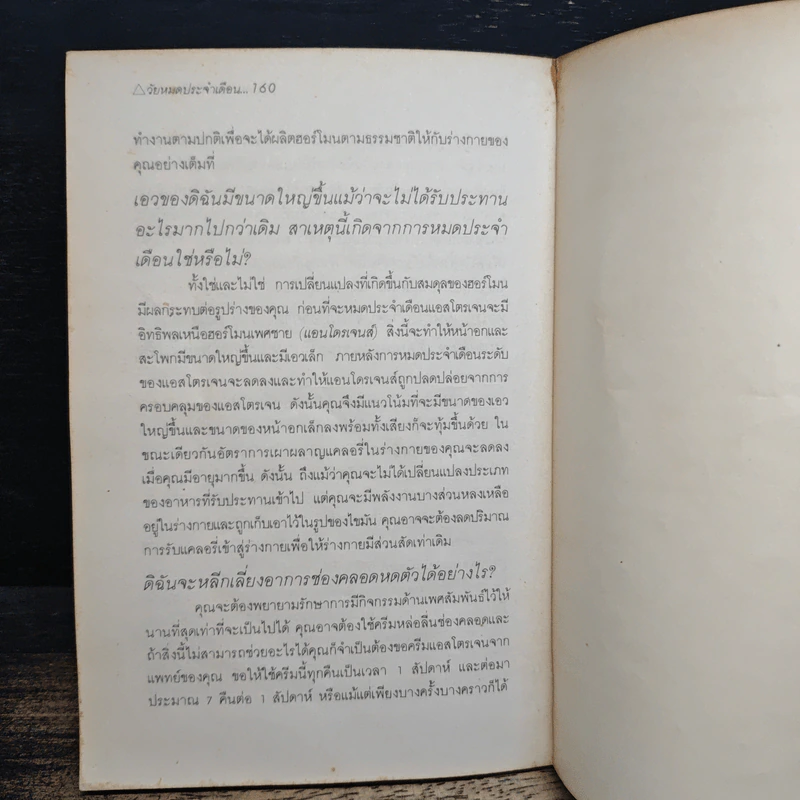 △วัยหมดประจำเดือน...160
ทำงานตามปกติเพื่อจะได้ผลิตฮอร์โมนตามธรรมชาติให้กับร่างกายของ
คุณอย่างเต็มที่
เอวของดิฉันมีขนาดใหญ่ขึ้นแม้ว่าจะไม่ได้รับประทาน
อะไรมากไปกว่าเดิม สาเหตุนี้เกิดจากการหมดประจำ
เดือนใช่หรือไม่?
ทั้งใช่และไม่ใช่ การเปลี่ยนแปลงที่เกิดขึ้นกับสมดุลของฮอร์โมน
มีผลกระทบต่อรูปร่างของคุณ ก่อนที่จะหมดประจำเดือนแอสโตรเจนจะมี
อิทธิพลเหนือฮอร์โมนเพศชาย (แอนโดรเจนส์) สิ่งนี้จะทำให้หน้าอกและ
สะโพกมีขนาดใหญ่ขึ้นและมีเอวเล็ก ภายหลังการหมดประจำเดือนระดับ
ของแอสโตรเจนจะลดลงและทำให้แอนโดรเจนส์ถูกปลดปล่อยจากการ
ครอบคลุมของแอสโตรเจน ดังนั้นคุณจึงมีแนวโน้มที่จะมีขนาดของเอว
ใหญ่ขึ้นและขนาดของหน้าอกเล็กลงพร้อมทั้งเสียงก็จะทุ้มขึ้นด้วย ใน
ขณะเดียวกันอัตราการเผาผลาญแคลอรี่ในร่างกายของคุณจะลดลง
เมื่อคุณมีอายุมากขึ้น ดังนั้น ถึงแม้ว่าคุณจะไม่ได้เปลี่ยนแปลงประเภท
ของอาหารที่รับประทานเข้าไป แต่คุณจะมีพลังงานบางส่วนหลงเหลือ
อยู่ในร่างกายและถูกเก็บเอาไว้ในรูปของไขมัน คุณอาจจะต้องลดปริมาณ
การรับแคลอรี่เข้าสู่ร่างกายเพื่อให้ร่างกายมีส่วนสัดเท่าเดิม
ดิฉันจะหลีกเลี่ยงอาการช่องคลอดหดตัวได้อย่างไร?
คุณจะต้องพยายามรักษาการมีกิจกรรมด้านเพศสัมพันธ์ไว้ให้
นานที่สุดเท่าที่จะเป็นไปได้ คุณอาจต้องใช้ครีมหล่อลื่นช่องคลอดและ
ถ้าสิ่งนี้ไม่สามารถช่วยอะไรได้คุณก็จำเป็นต้องขอครีมแอสโตรเจนจาก
แพทย์ของคุณ ขอให้ใช้ครีมนี้ทุกคืนเป็นเวลา 1 สัปดาห์ และต่อมา
ประมาณ 7 คืนต่อ 1 สัปดาห์ หรือแม้แต่เพียงบางครั้งบางคราวก็ได้